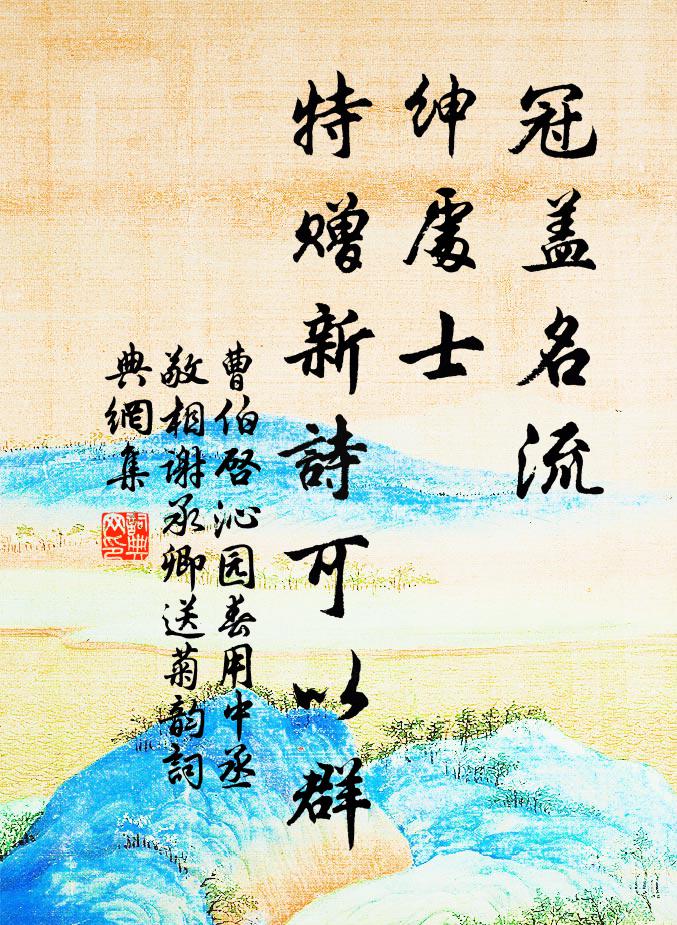 冠盖名流
绅處士
特赠新詩可以群
曹伯启沁园春用中丞
敬相谢承卿送菊韵詞
典網集
詞典
网印